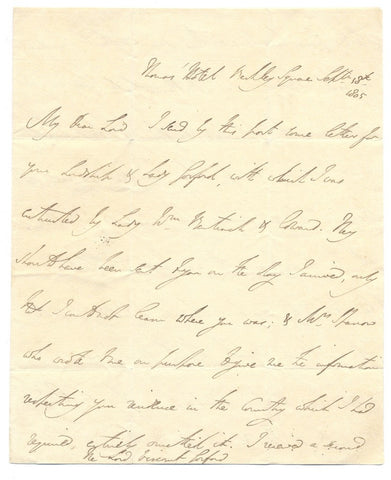 Thomas' Hotel Berkley Square Sept. 18th
1805
My Dear Lord I send by this post some letters for
your Lordship & Lady Gosford, with which I was
entrusted by Lady Wm Bentinck & Edward. They
should have been sent to you on the day I arrived, only
that I could not learn where you was; & Mrs. Sparrow
who wrote me on purpose to give me the information
respecting your residence in the Country which I had
required, entirely omitted it. I received a second
The Lord Viscount Gosford